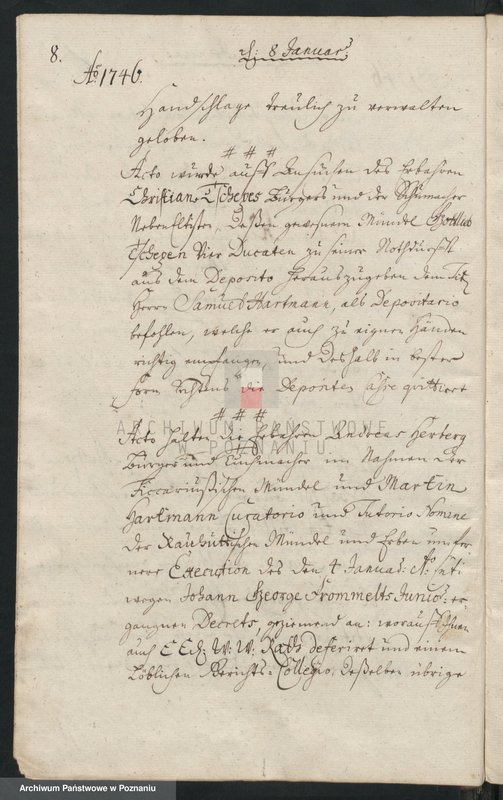 8.
d: 8 Januar:
Ao 1746.
Handschlage treulich zu verwalten
geloben.
# # #
Acto wurde auff Ansuchen des Erbahren
Christian Tschepes Bürgers und der Schumacher
Nebeneltesten, deßen gewesenem Mündel Gottlieb
Tschepen Vier Ducaten zu seiner Nothdurfft
aus dem Deposito herauszugeben dem Tit:
Herrn Samuel Hartmann, als Depositario
befohlen, welche er auch zu eignen Händen
richtig empfangen und deshalb in bester
form Rechtens die Depositen quittiret
# # #
Acto halten die Erbahren Andreas Herberg
Bürger und Tuchmacher im Nahmen der
Mündel und Martin
Hartmann Curatorio und Tutorio Nomine
der Mündel und Erben umb fer
nere Execution des den 4 Januar:
wegen Johann George Frommelts Junior: er
gangnen Decrets, geziemend an: worauf Ihnen
auch E Ed: W: W: Rath deferiret und einem
Löblichen Gerichts-Collegio, deßelben übrige
ARCHIWUM PAŃSTWOWE
W POZNANIU
Archiwum Państwowe w Poznaniu